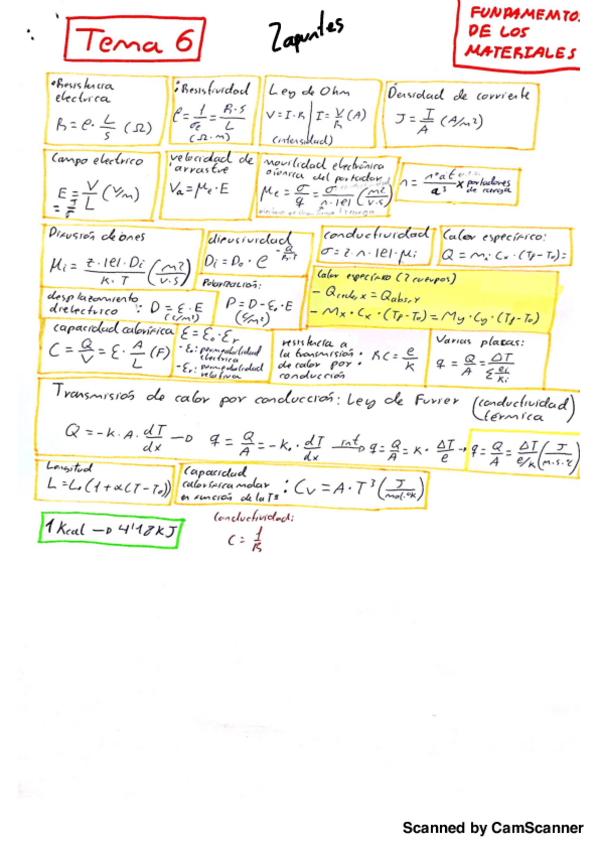 Tema 6
Zapuntes
FUNDAMENTO
DE LOS
MATERIALES
Resistencia
electrica
R = ρ · L/S (Ω)
Resistividad
ρ = 1/σe = R·S/L
(Ω·m)
Ley de Ohm
V = I·R | I = V/R (A)
(intensidad)
Densidad de corriente
J = I/A (A/m²)
Campo electrico
E = V/L (V/m)
velocidad de
arrastre
Va = μe · E
movilidad electrónica
o ionica del portador
μe = σ/q = σ/n·|e| (m²/v·s)
n = nºat/a³ x portadores
de carga
Difusión de iones
μi = z·|e|·Di/K·T (m²/v·s)
difusividad
Di = Do · e^-Q/R·T
conductividad
σ = z·n·|e|·μi
Calor especifico:
Q = m·Cx·(Tf-To)=
desplazamiento
dielectrico : D = ε·E
(C/m²)
Polarización:
P = D - εo·E
(C/m²)
Calor especifico (2 cuerpos)
- Qcede, x = Qabs, y
- Mx · Cx · (Tf-To) = My · Cy · (Tf-To)
capacidad calorifica
C = Q/V = ε · A/L (F)
ε = εo · εr
- εo: permeabilidad
electrica
- εr: permeabilidad
relativa
resistencia a
la transmisión : RC = e/K
de calor por
conducción
Varias placas:
q = Q/A = ΔT/Σ ei/Ki
Transmisión de calor por conducción: Ley de Furrier (conductividad)
termica
Q = -k·A·dT/dx → q = Q/A = -k·dT/dx int→ q = Q/A = K·ΔT/e → q = Q/A = ΔT/e/k (J/m·s·k)
Longitud
L = Lo (1+α(T-To))
Capacidad
calorifica molar
en función de la Tª : Cv = A·T³ (J/mol·ºK)
1 Kcal → 4'18 KJ
Conductividad:
C = 1/R
Scanned by CamScanner